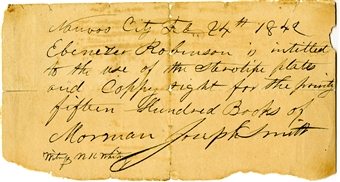 Nauvoo City Feb 24th 1842
Ebenezer Robinson is intitled
to the use of the Sterotipe plates
and Coppy right for the printg
fifteen Hundred Books of
Mormon Joseph Smith